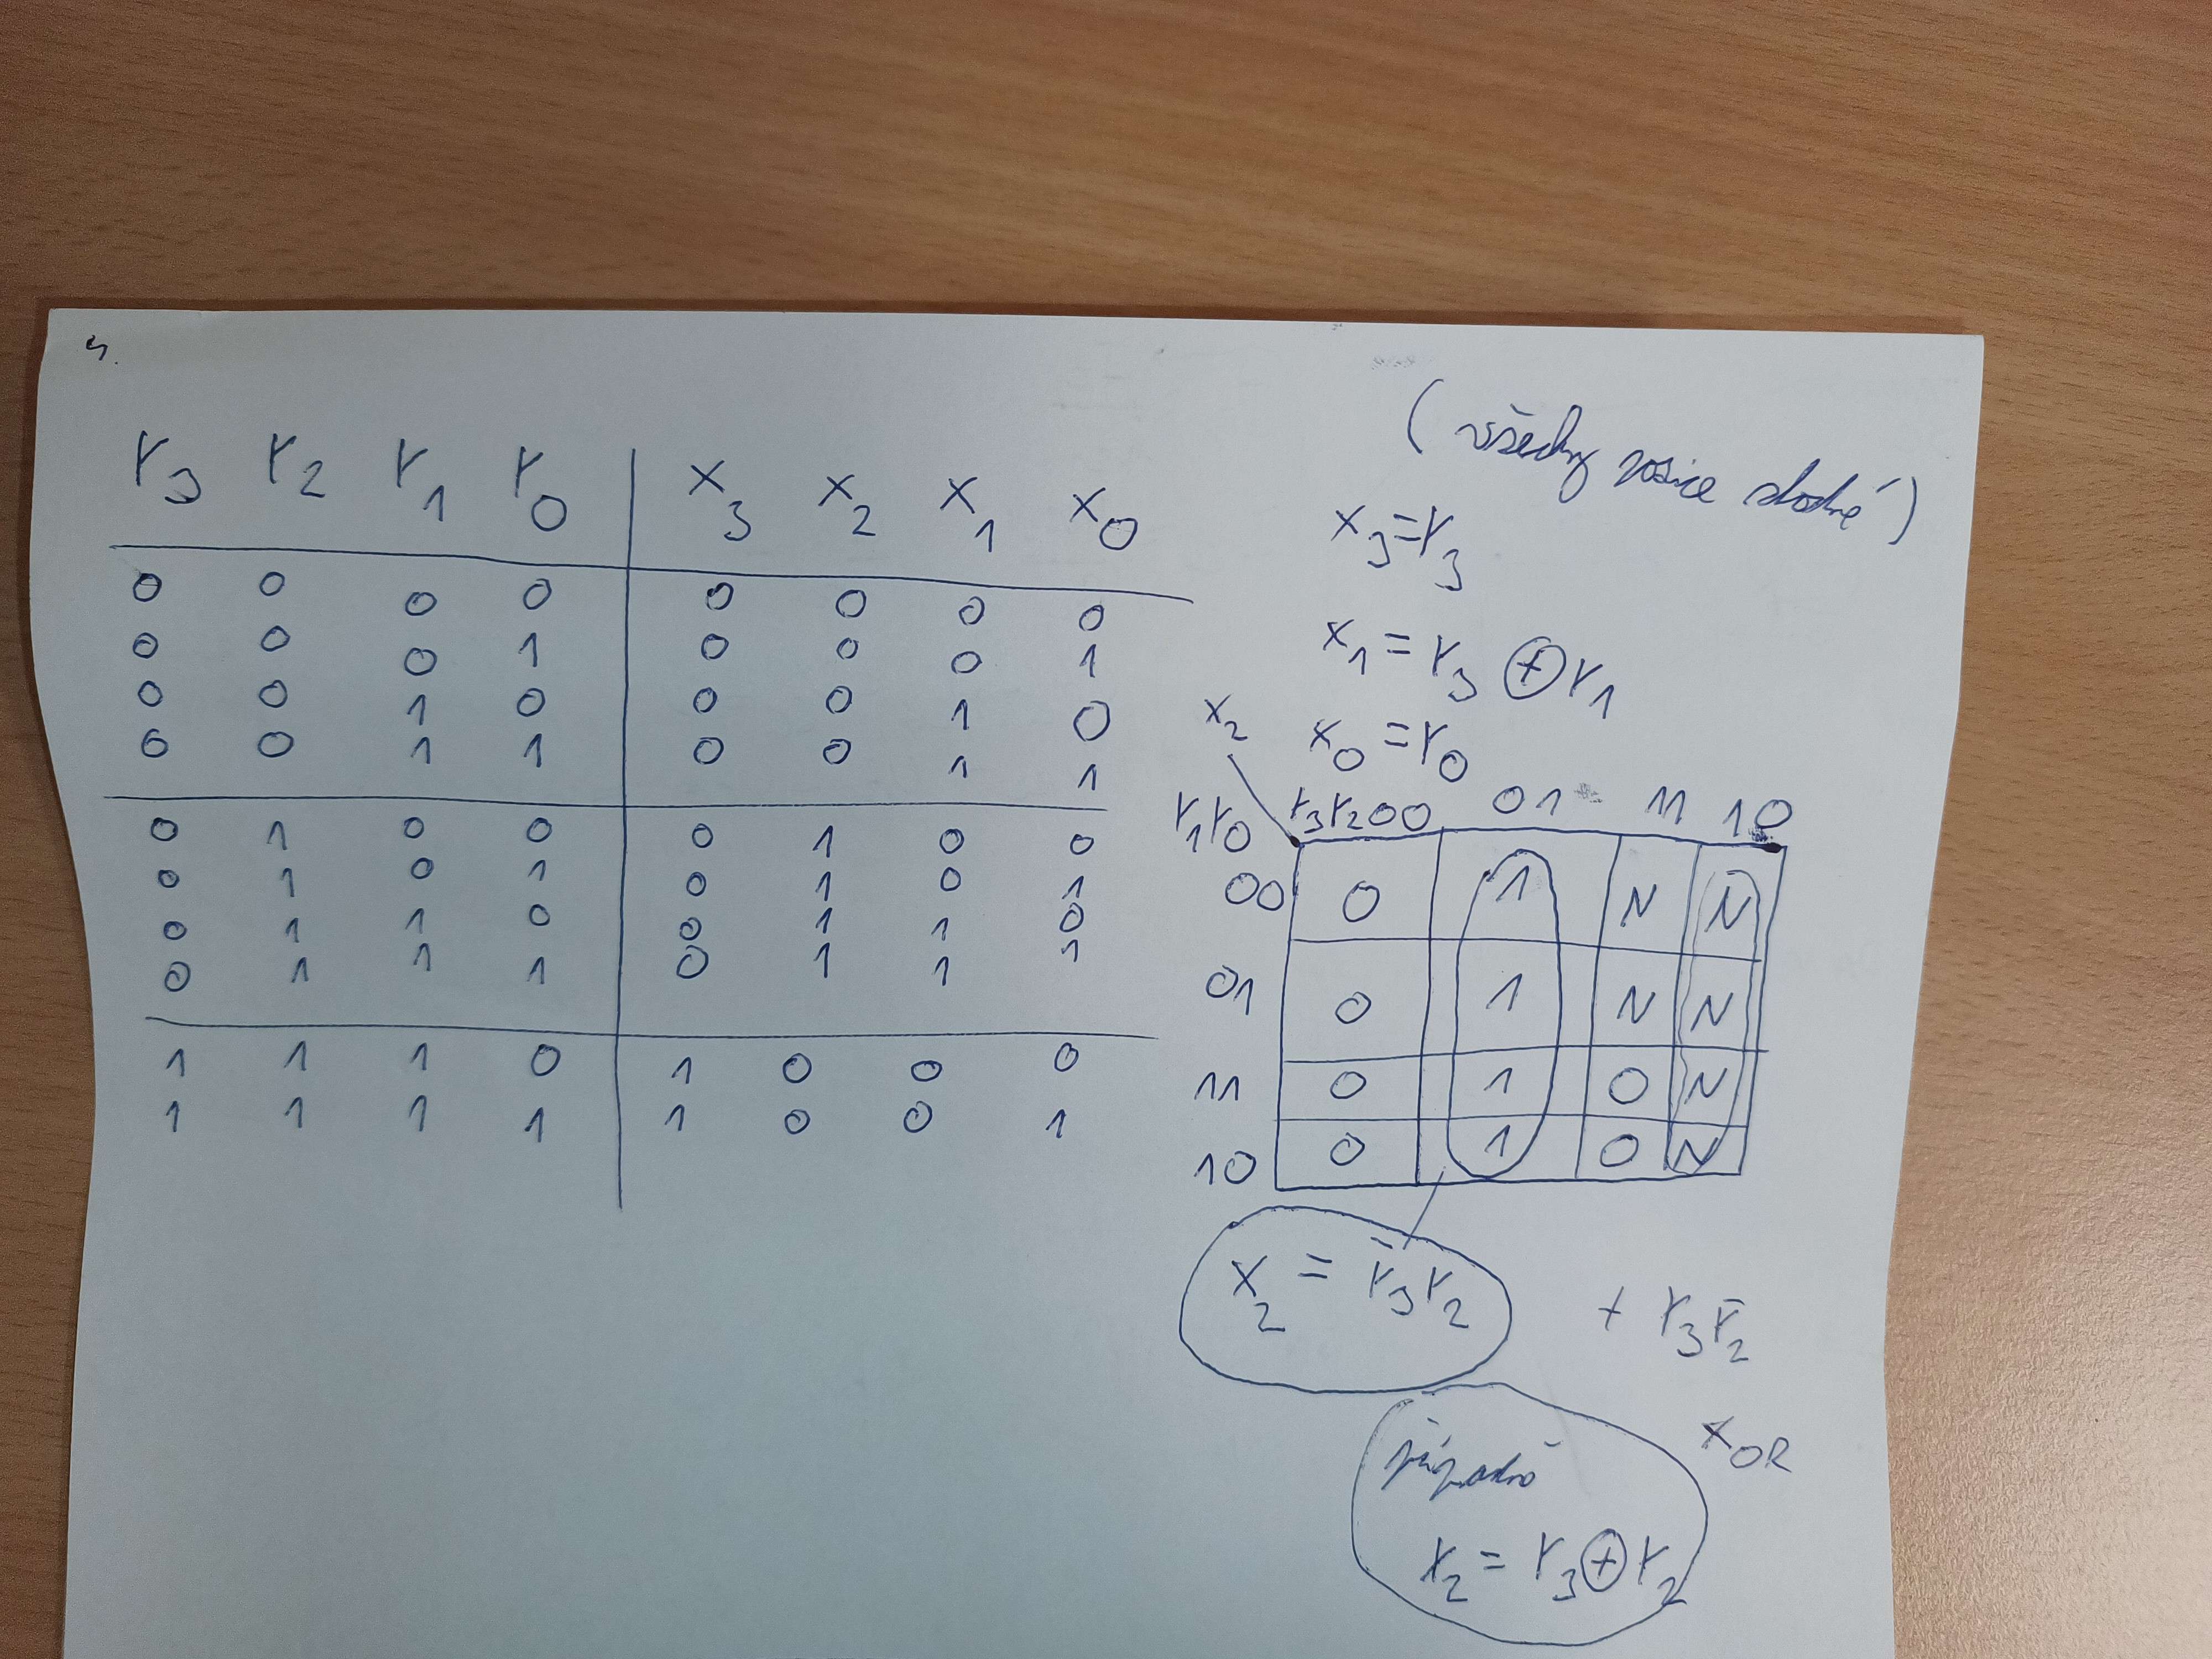 4.
r3 r2 r1 r0 | x3 x2 x1 x0
0 0 0 0 | 0 0 0 0
0 0 0 1 | 0 0 0 1
0 0 1 0 | 0 0 1 0
0 0 1 1 | 0 0 1 1
0 1 0 0 | 0 1 0 0
0 1 0 1 | 0 1 0 1
0 1 1 0 | 0 1 1 0
0 1 1 1 | 0 1 1 1
1 1 1 0 | 1 0 0 0
1 1 1 1 | 1 0 0 1
(všechny pozice shodné)
x3=r3
x1=r3⊕r1
x0=r0
x2
r1r0 r3r2 00 01 11 10
00 0 1 N N
01 0 1 N N
11 0 1 0 N
10 0 1 0 N
x2 = r̄3r2 + r3r̄2
XOR
případně
x2 = r3⊕r2